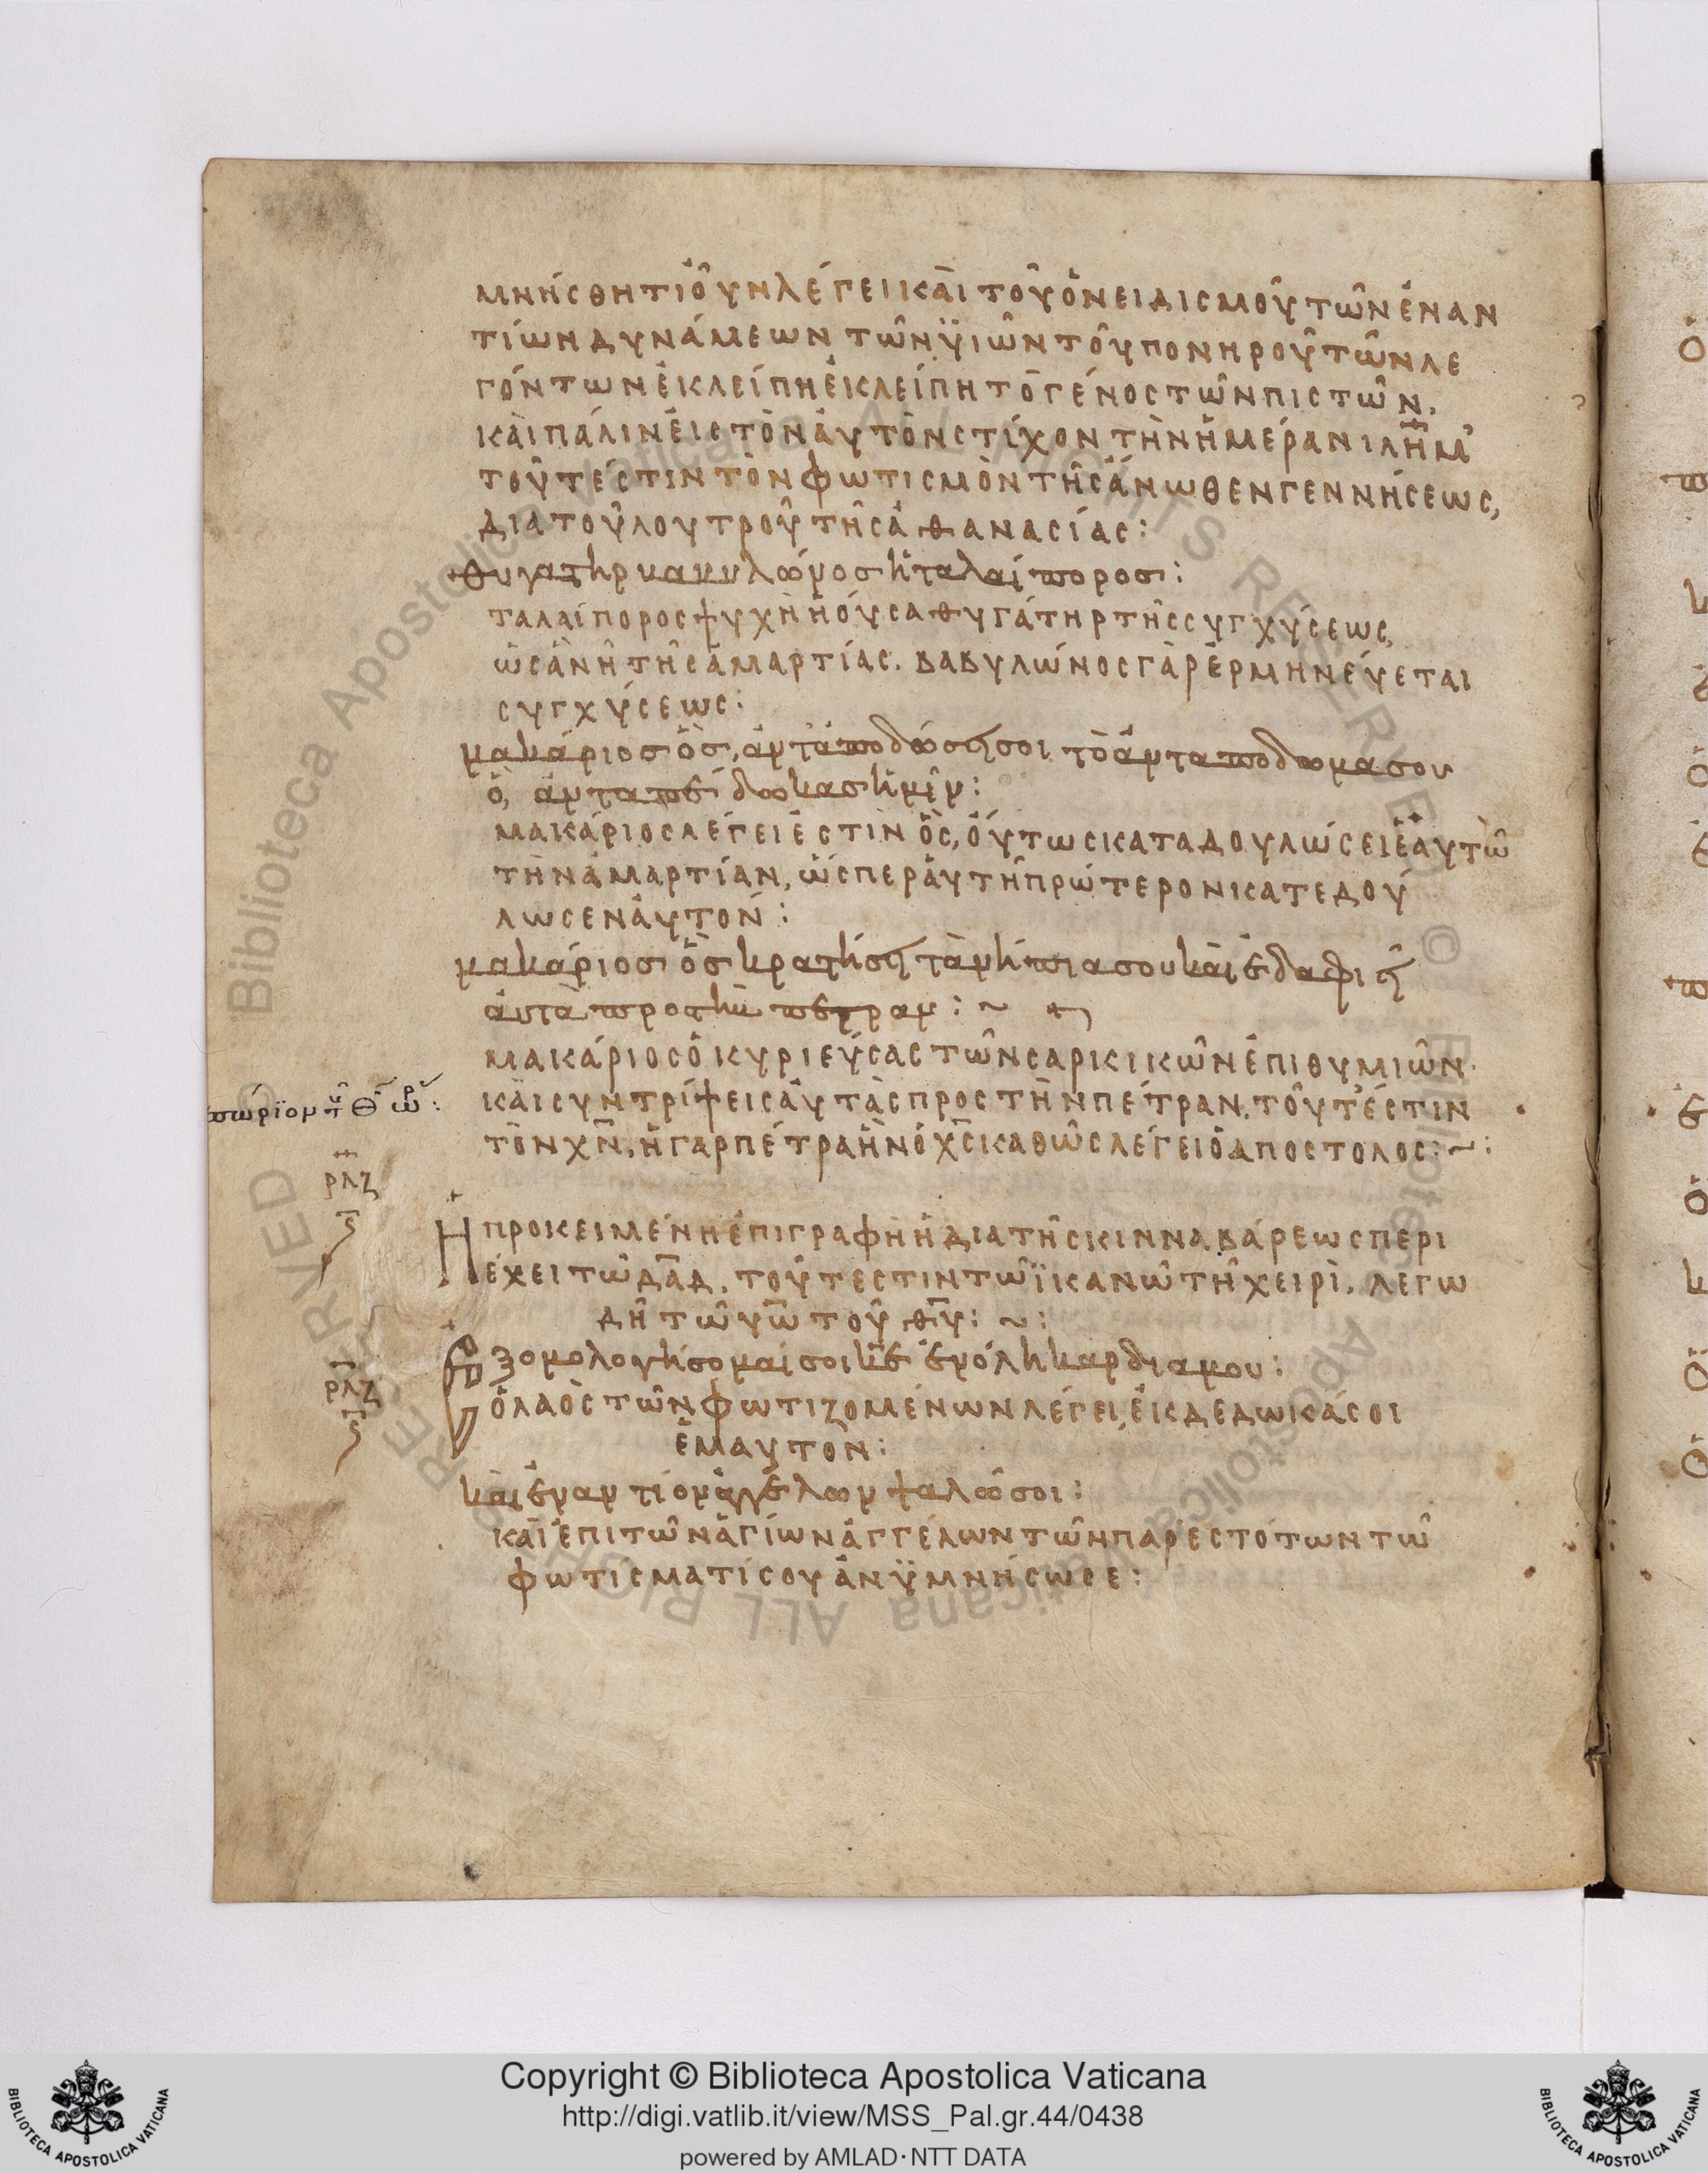 μνήσθητι οὖν λέγει καὶ τοῦ ὀνειδισμοῦ τῶν ἐναν
τίων δυνάμεων τῶν ϋἱῶν τοῦ πονηροῦ τῶν λε
γόντων ἐκλείπη ἐκλείπη τὸ γένος τῶν πιστῶν.
καὶ πάλιν εἰς τὸν αὐτὸν στίχον τὴν ἡμέραν ιλημ
τοῦτέστιν τὸν φωτισμὸν τῆς ἄνωθεν γεννήσεως,
διατοῦ λουτροῦ τῆς ἀθανασίας:
θυγατηρ βαβυλῶνος ἡ ταλαίπορος:
ταλαίπορος ψυχὴ ἡ οὖσα θυγάτηρ τῆς συγχύσεως,
ὡσὰν ἢ τῆς ἁμαρτίας. βαβυλώνος γὰρ ἑρμηνεύεται
συγχύσεως:
μακάριος ὃς, ἀνταποδώσει σοι τὸ ἀνταποδωμα σου
ὃ, ἀνταπέδωκας ἡμῖν:
μακάριος λέγει ἐστὶν ὃς, οὕτως καταδουλώσει ἑαυτῶ
τὴν ἁμαρτίαν, ὥσπερ αὐτὴ πρώτερον κατεδού
λωσεν αὐτόν:
μακάριος ὃς κρατήσει τὰ νήπια σου καὶ ἐδαφιεῖ
ἀυτὰ προς τὴν πέτραν: ~
μακάριος ὁ κυριεύσας τῶν σαρκικῶν ἐπιθυμιῶν.
καὶ συντρίψεις αὐτὰς προς τὴν πέτραν. τοῦτέστιν
τὸν χν, ἡ γαρ πέτρα ἦν ὁ χς καθῶς λέγει ὁ αποστολος: ~:
ρλζ
Ἡ προκειμένη ἐπιγραφὴ ἡ δια τῆς κινναβάρεως περι
έχει τῶ δαδ. τοῦτεστιν τῶ ϊκανῶ τῆ χειρὶ. λεγω
δὴ τῶ υω τοῦ θυ: ~:
Ἐξομολογήσομαί σοι κε ἐν ὅλη καρδια μου:
ρλζ
ὁ λαὸς τῶν φωτιζομένων λέγει, ἐκδεδωκά σοι
ἐμαυτὸν:
καὶ ἐναντίον ἀγγέλων ψαλῶ σοι:
καὶ ἐπι τῶν ἁγίων ἀγγέλων τῶν παρεστότων τῶ
φωτισματί σου ἀνϋμνήσω σε:
Copyright © Biblioteca Apostolica Vaticana
http://digi.vatlib.it/view/MSS_Pal.gr.44/0438
powered by AMLAD·NTT DATA
BIBLIOTECA APOSTOLICA VATICANA
BIBLIOTECA APOSTOLICA VATICANA